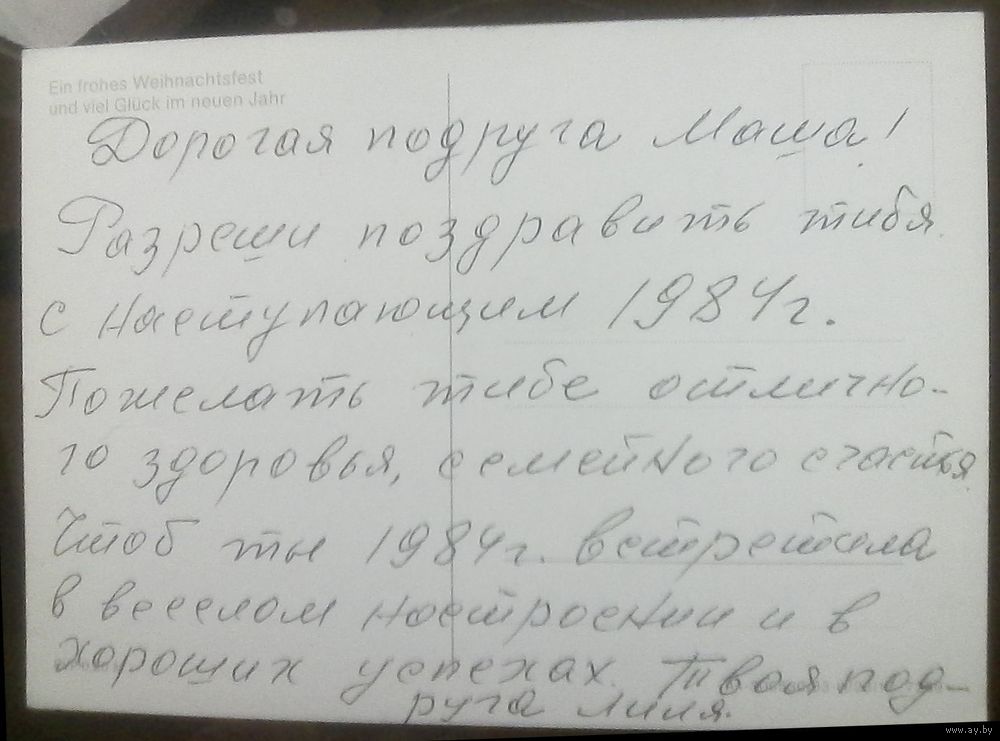 Ein frohes Weihnachtsfest
und viel Glück im neuen Jahr
Дорогая подруга Маша!
Разреши поздравить тибя
с наступающим 1984г.
Пожелать тибе отлично-
го здоровья, семейного счастья.
Чтоб ты 1984г. встретила
в веселом настроении и в
хороших успехах. Твоя под-
руга Лиля.
www.ay.by